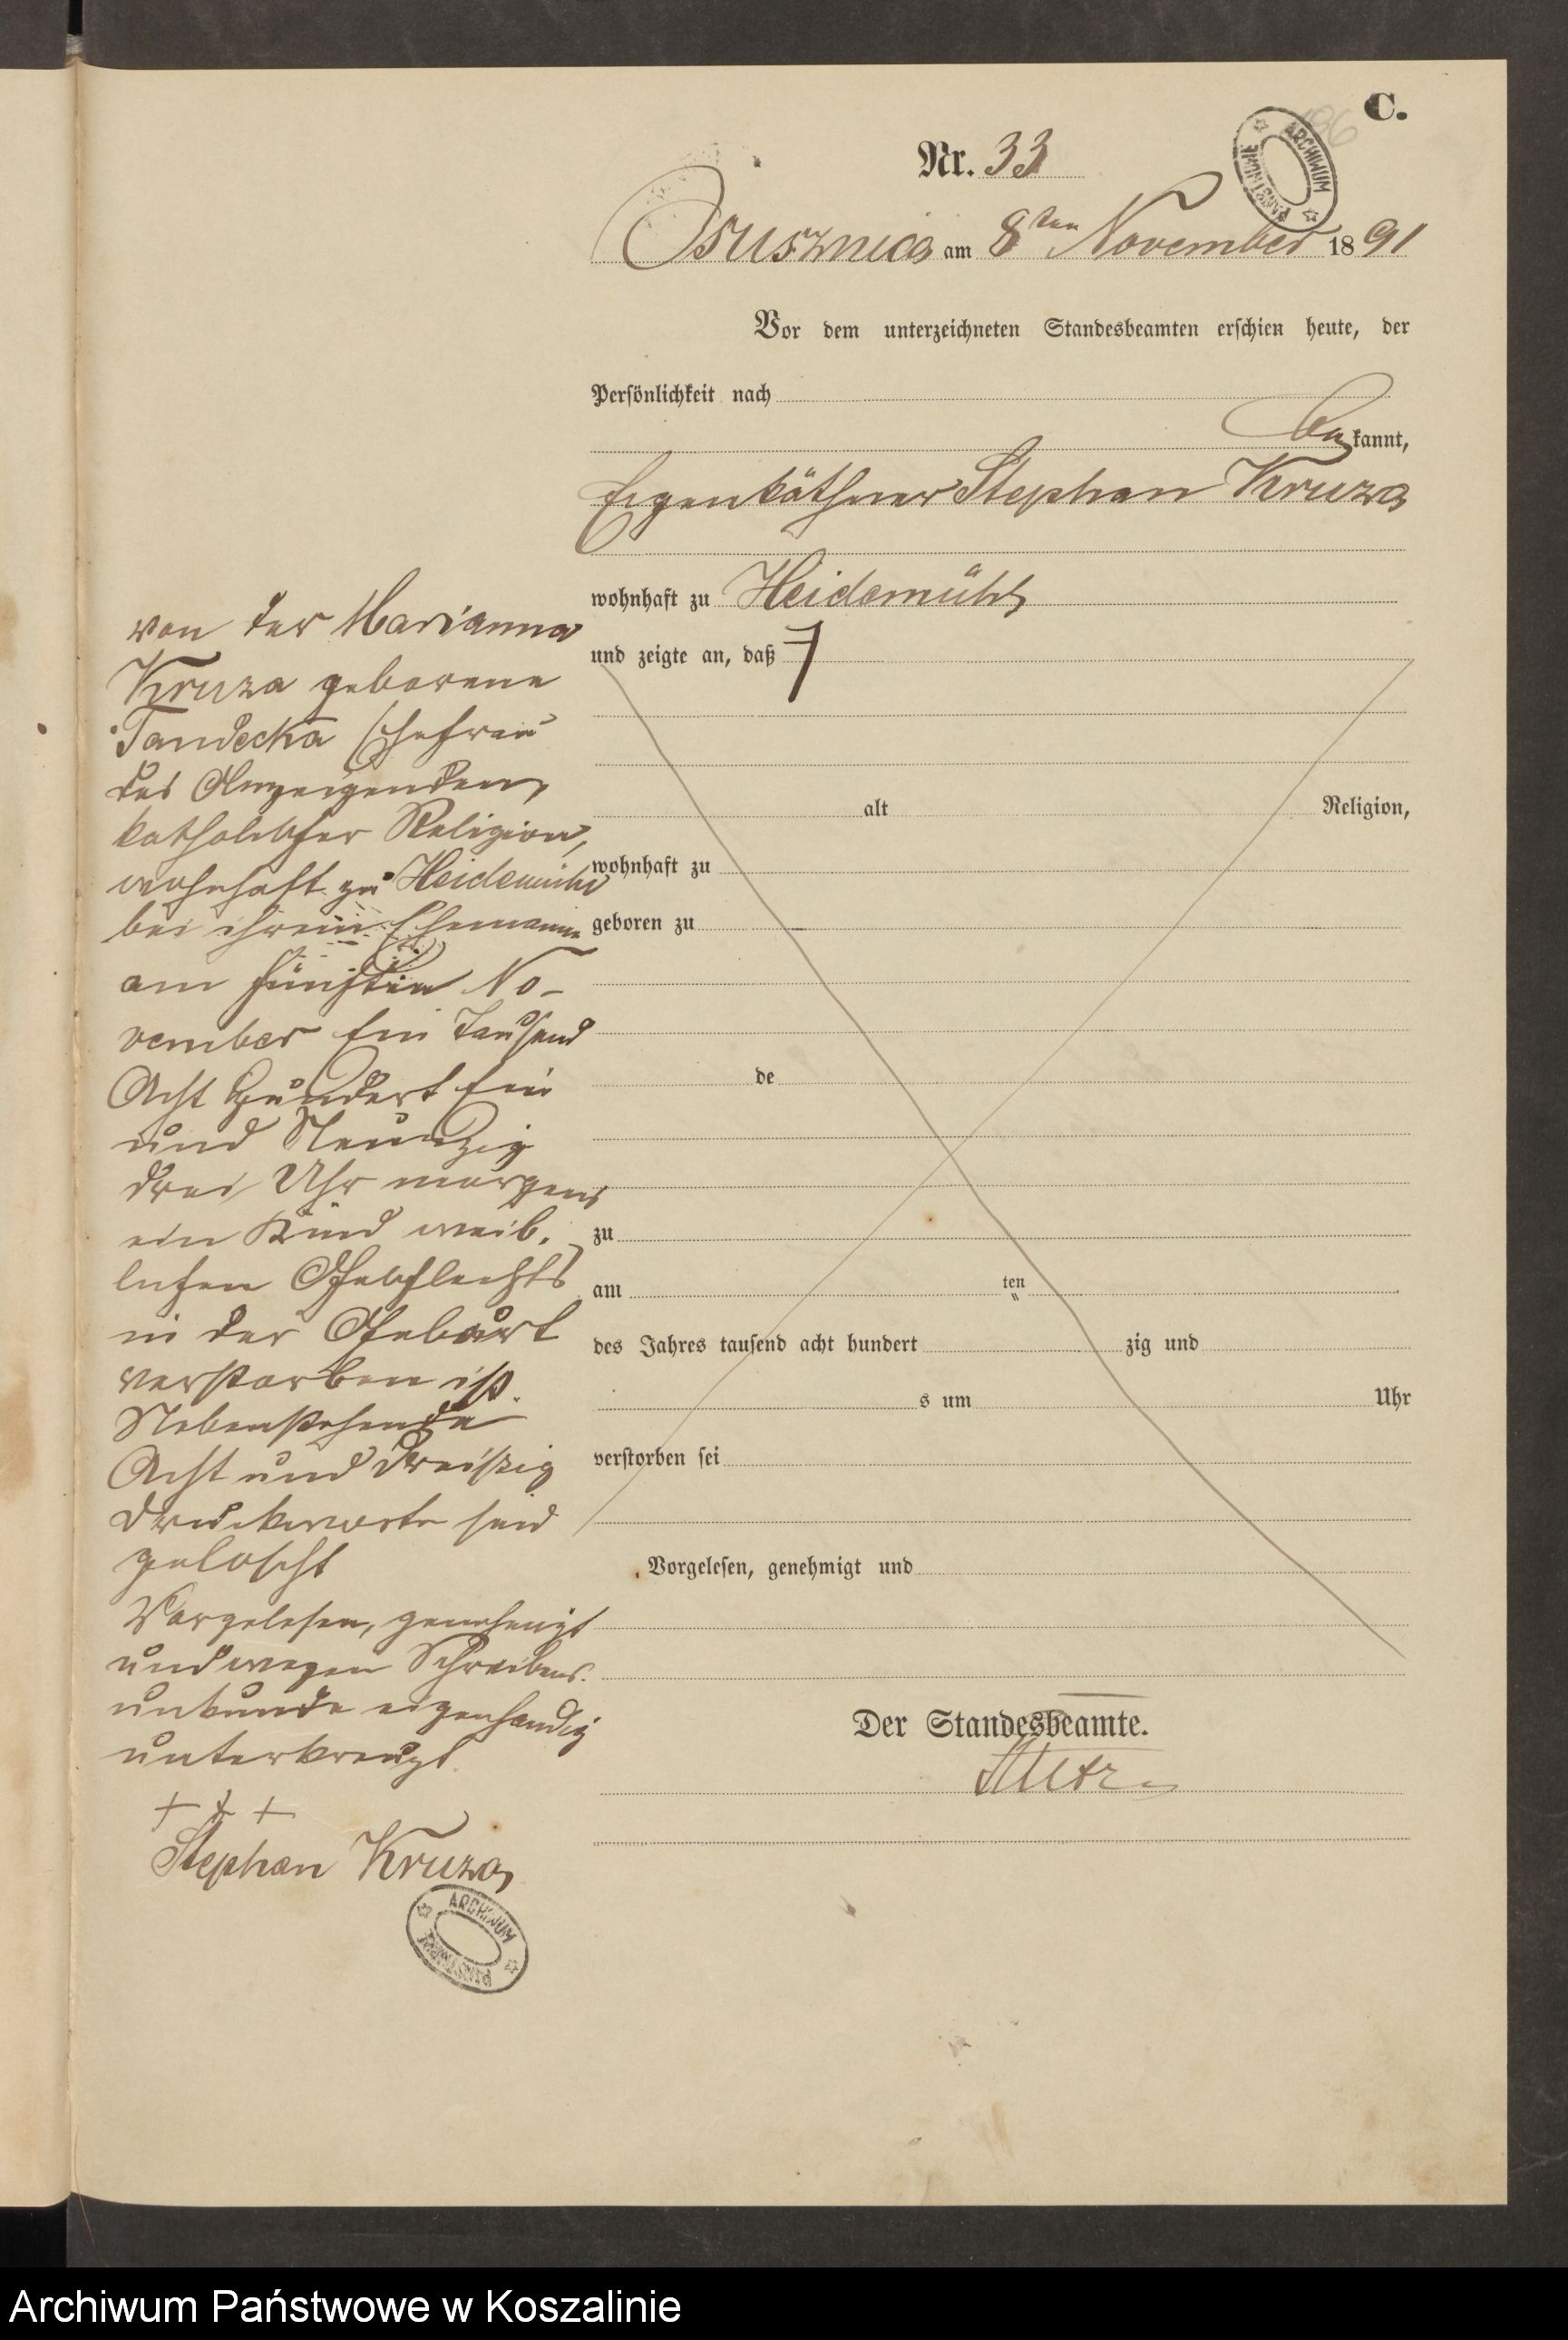 C.
186
ARCHIWUM PAŃSTWOWE
Nr. 33
Osusznica am 8ten November 1891
Vor dem unterzeichneten Standesbeamten erschien heute, der
Persönlichkeit nach
be kannt,
Eigenkäthner Stephan Kruza
wohnhaft zu Heidemühl
und zeigte an, daß
alt Religion,
wohnhaft zu
geboren zu
de
zu
am ten
des Jahres tausend acht hundert zig und
s um Uhr
verstorben sei
Vorgelesen, genehmigt und
Der Standesbeamte.
von der Marianna
Kruza geborene
Tandecka Ehefrau
des Anzeigenden,
katholischer Religion,
wohnhaft zu Heidemühl
bei ihrem Ehemanne
am fünften No-
vember Ein Tausend
Acht Hundert Ein
und Neunzig
drei Uhr morgens
ein Kind weib-
lichen Geschlechts
in der Geburt
verstorben ist.
Nebenstehende
Acht und dreißig
Druckworte sind
gelöscht
Vorgelesen, genehmigt
und wegen Schreibens-
unkunde eigenhändig
unterkreuzt.
+ + +
Stephan Kruza
ARCHIWUM PAŃSTWOWE
Archiwum Państwowe w Koszalinie